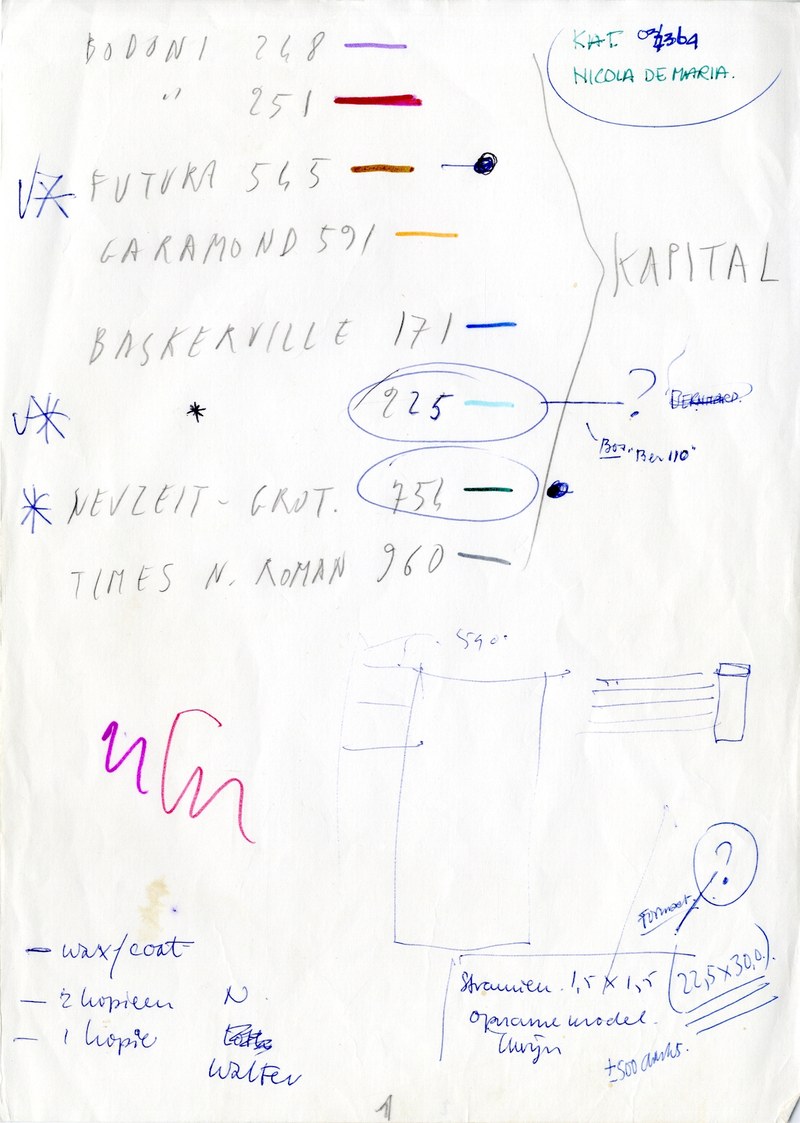 KAT.
NICOLA DE MARIA.
BODONI 248
" 251
FUTURA 545
GARAMOND 591
KAPITAL
BASKERVILLE 171
* 225 ?
"Ber 110"
NEUZEIT - GROT. 754
TIMES N. ROMAN 960
590
?
Formaat.
— wax/coat
— 2 kopieen N
— 1 kopie
Walter
Stramien. 1,5 x 1,5 (22,5 x 30,0.)
opname model.
±500
1